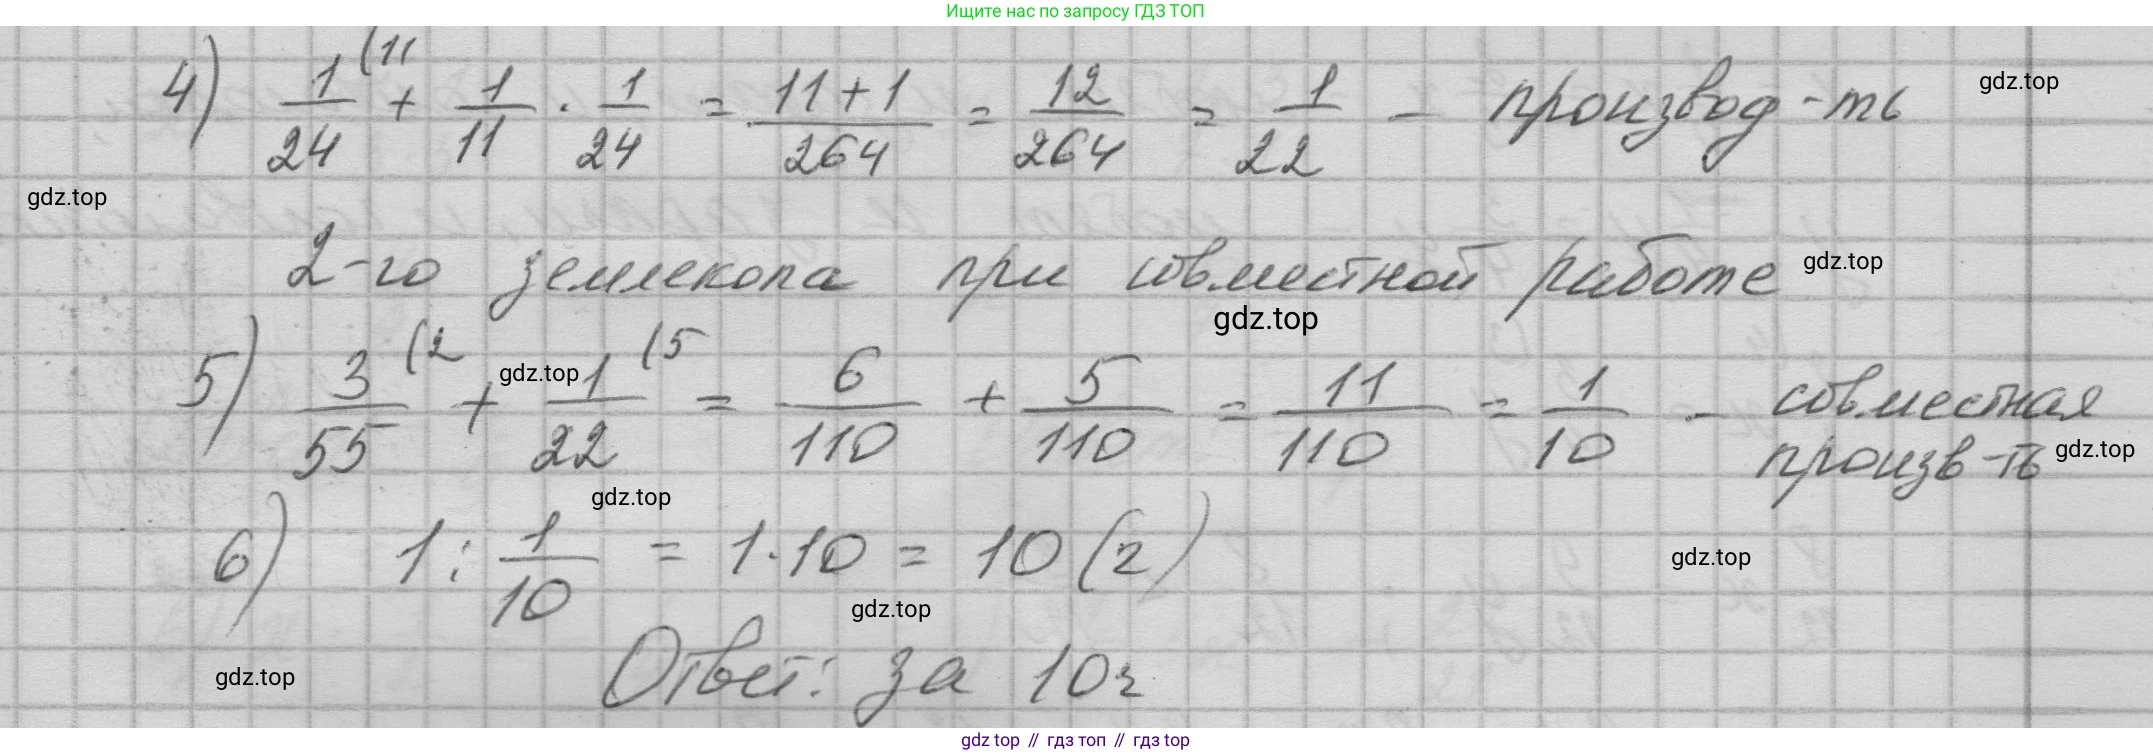 Ищите нас по запросу ГДЗ ТОП
4) 1/24 (11 + 1/11 · 1/24 = (11+1)/264 = 12/264 = 1/22 – производ-ть
gdz.top
gdz.top
2-го землекопа при совместной работе
gdz.top
gdz.top
5) 3/55 (2 + 1/22 (5 = 6/110 + 5/110 = 11/110 = 1/10 – совместная
произв-ть
gdz.top
gdz.top
gdz.top
6) 1 : 1/10 = 1·10 = 10 (ч)
gdz.top
gdz.top
Ответ: за 10ч
gdz.top
gdz top // гдз топ // gdz top